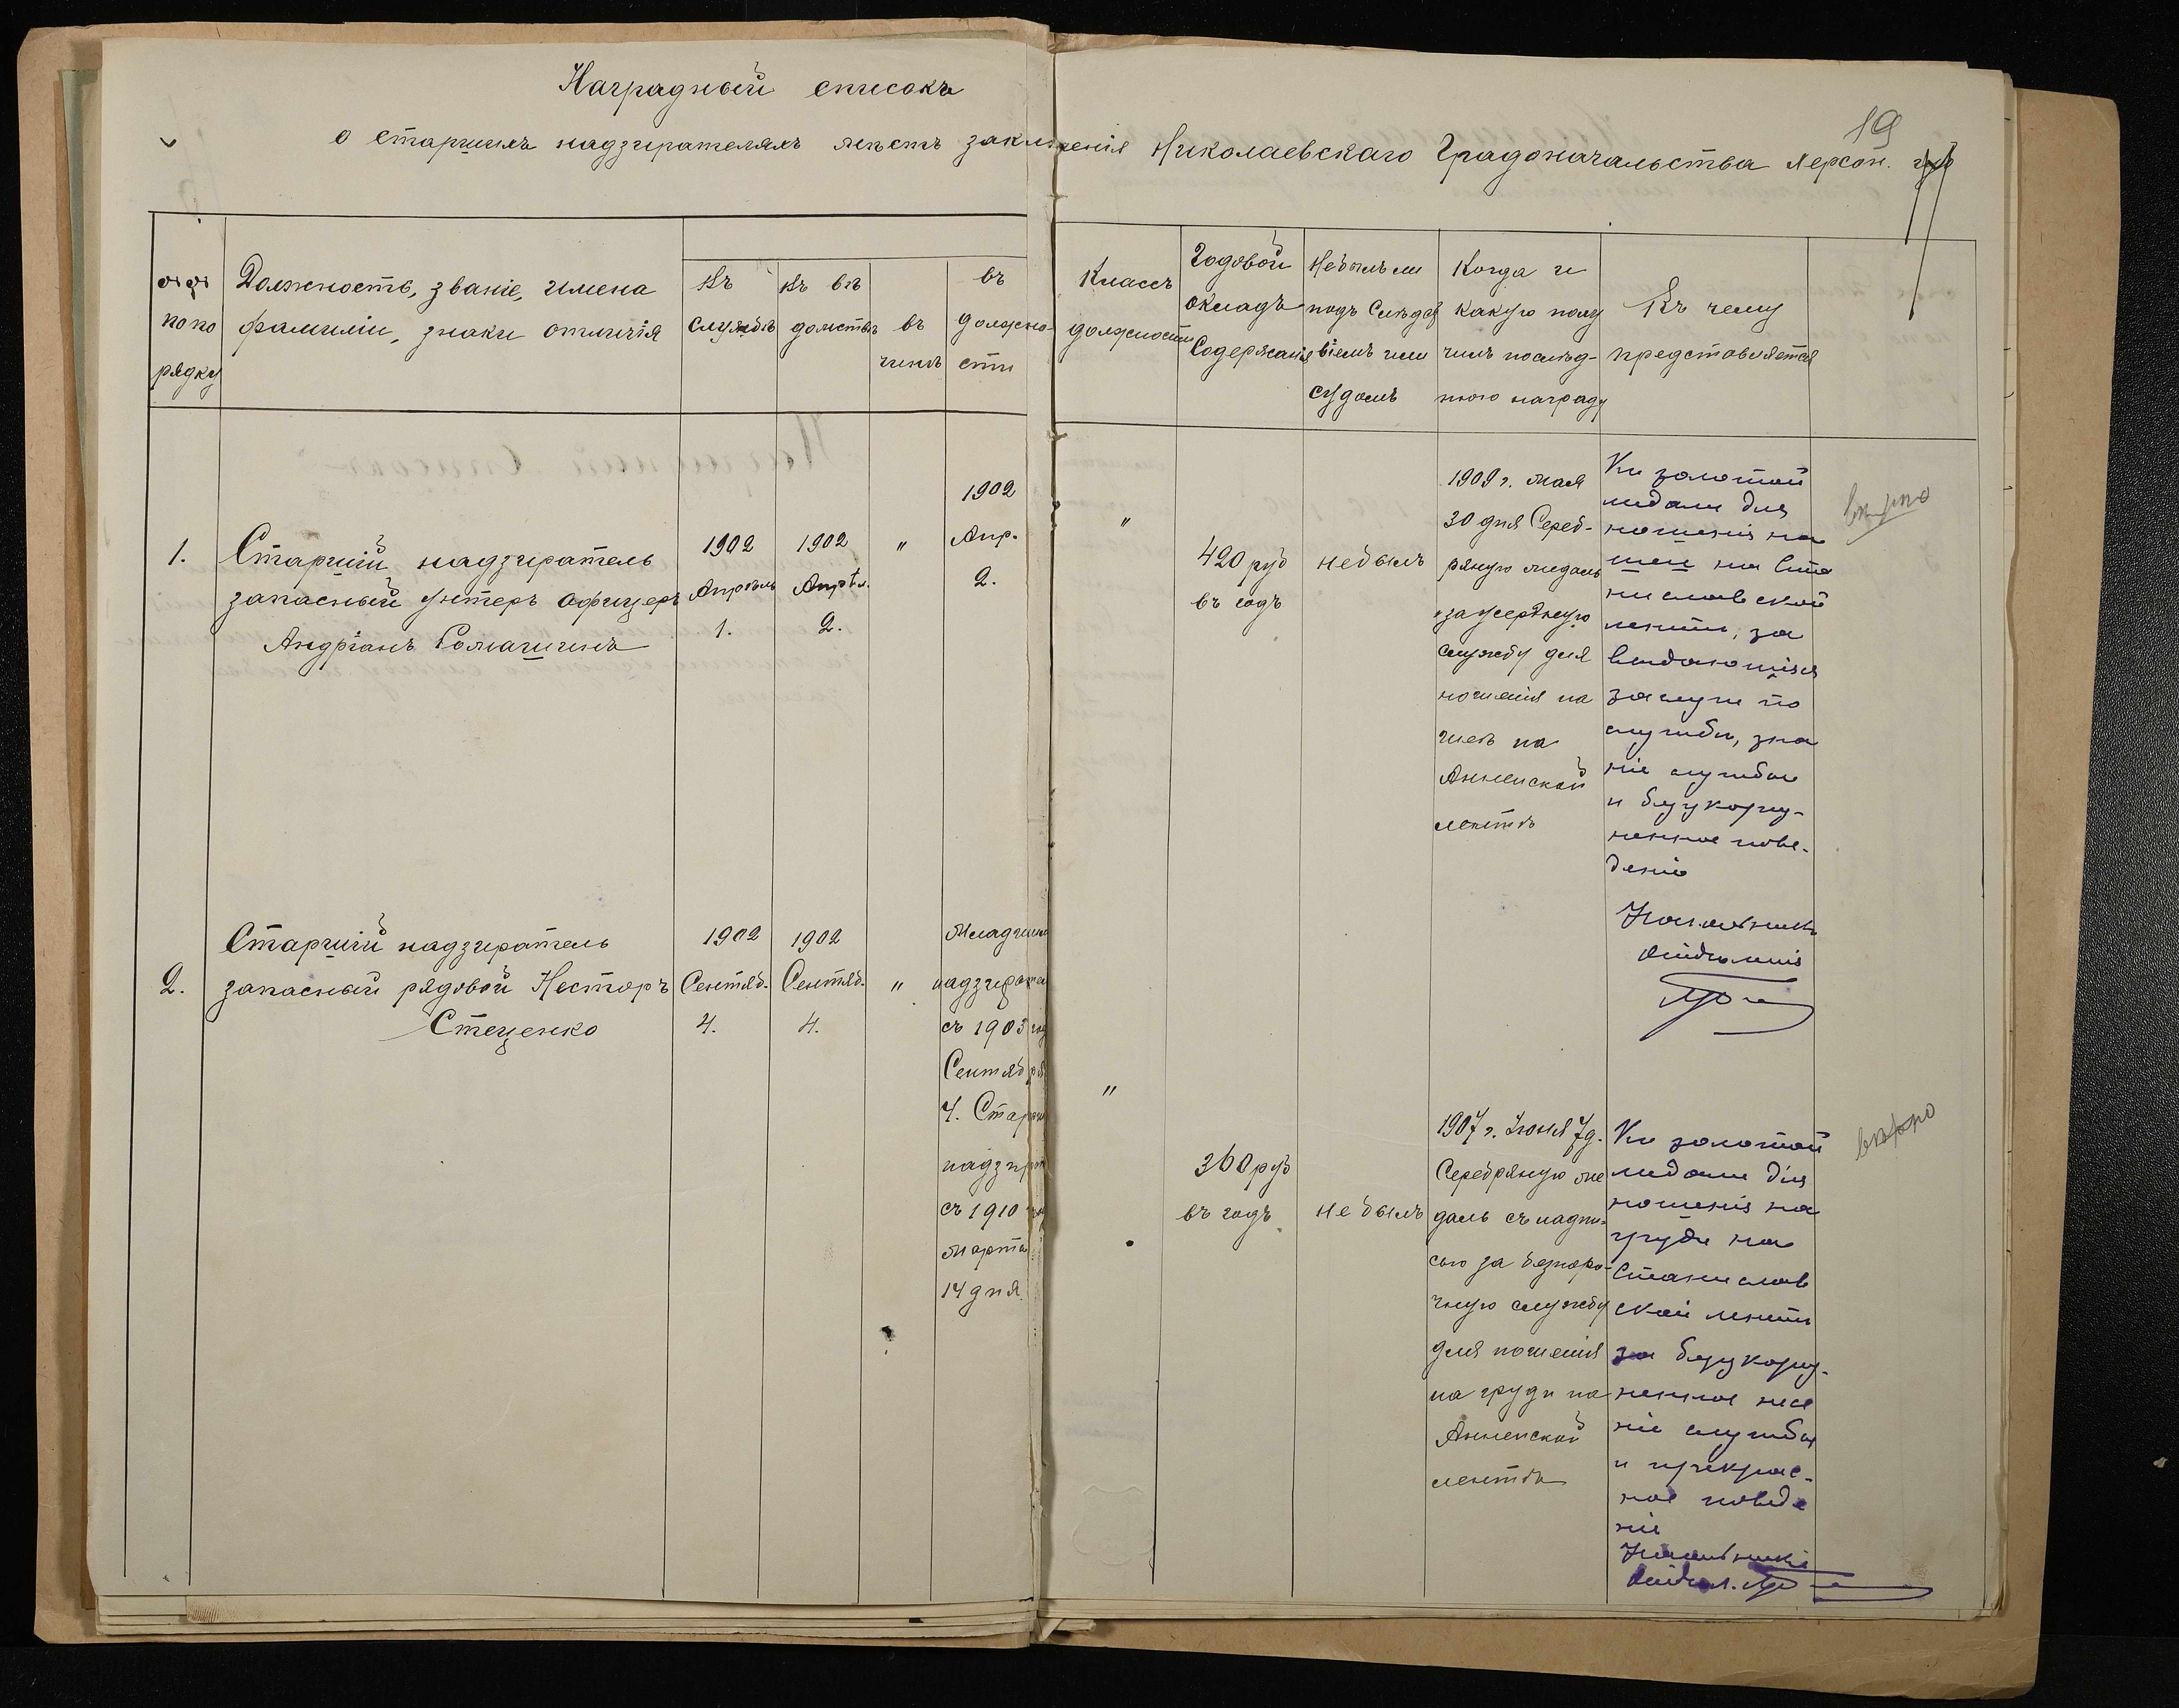 Наградный списокъ
о старшихъ надзирателяхъ мѣстъ заключенія Николаевскаго Градоначальства Херсон. губ
19
№№
по по
рядку
Должность, званіе, имена
фамиліи, знаки отличія
Въ
службѣ
Въ вѣ
домствѣ
въ
чинѣ
въ
должно
сти
Классъ
должности
Годовой
окладъ
Содержанія
Небылъ ли
подъ Слѣдст
віемъ или
судомъ
Когда и
какую полу
чилъ послѣд-
нюю награду
Къ чему
представляется
1.
Старшій надзиратель
запасный унтеръ офицеръ
Андріанъ Ромашинъ
1902
Апрѣль
1.
1902
Апрѣл.
2.
"
1902
Апр.
2.
"
420 руб
въ годъ
небылъ
1909 г. мая
30 дня Сереб-
ряную медаль
"за усердную
службу для
ношенія на
шеѣ на
Анненской
лентѣ
Къ золотой
медали для
ношенія на
шеи на Ста
ниславской
ленти, за
выдающіяся
заслуги по
службѣ, зна
ніе службы
и безукориз-
ненное пове-
деніе
Начальникъ
вѣрно
2.
Старшій надзиратель
запасный рядовой Несторъ
Стеценко
1902
Сентяб.
4.
1902
Сентяб.
4.
"
Младшимъ
надзирател
съ 1903 год
Сентября
4. Старш
надзират
съ 1910 год
Марта
14 дня.
"
360 руб
въ годъ
небылъ
1907 г. Іюня 7 д.
Серебряную ме
даль съ надпи-
сью за безпоро-
чную службу
для ношенія
на груди на
Анненской
лентѣ
Къ золотой
медали для
ношенія на
груди на
Станислав
ской ленти
за безукориз-
ненное несе
ніе службы
и прекрас-
ное поведе
ніе
Начальникъ
вѣрно